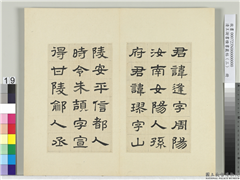 君諱逢字周陽
汝南女陽人孫
府君諱璆字山
陵安平信都人
時令朱頡字宣
得甘陵鄃人丞
19